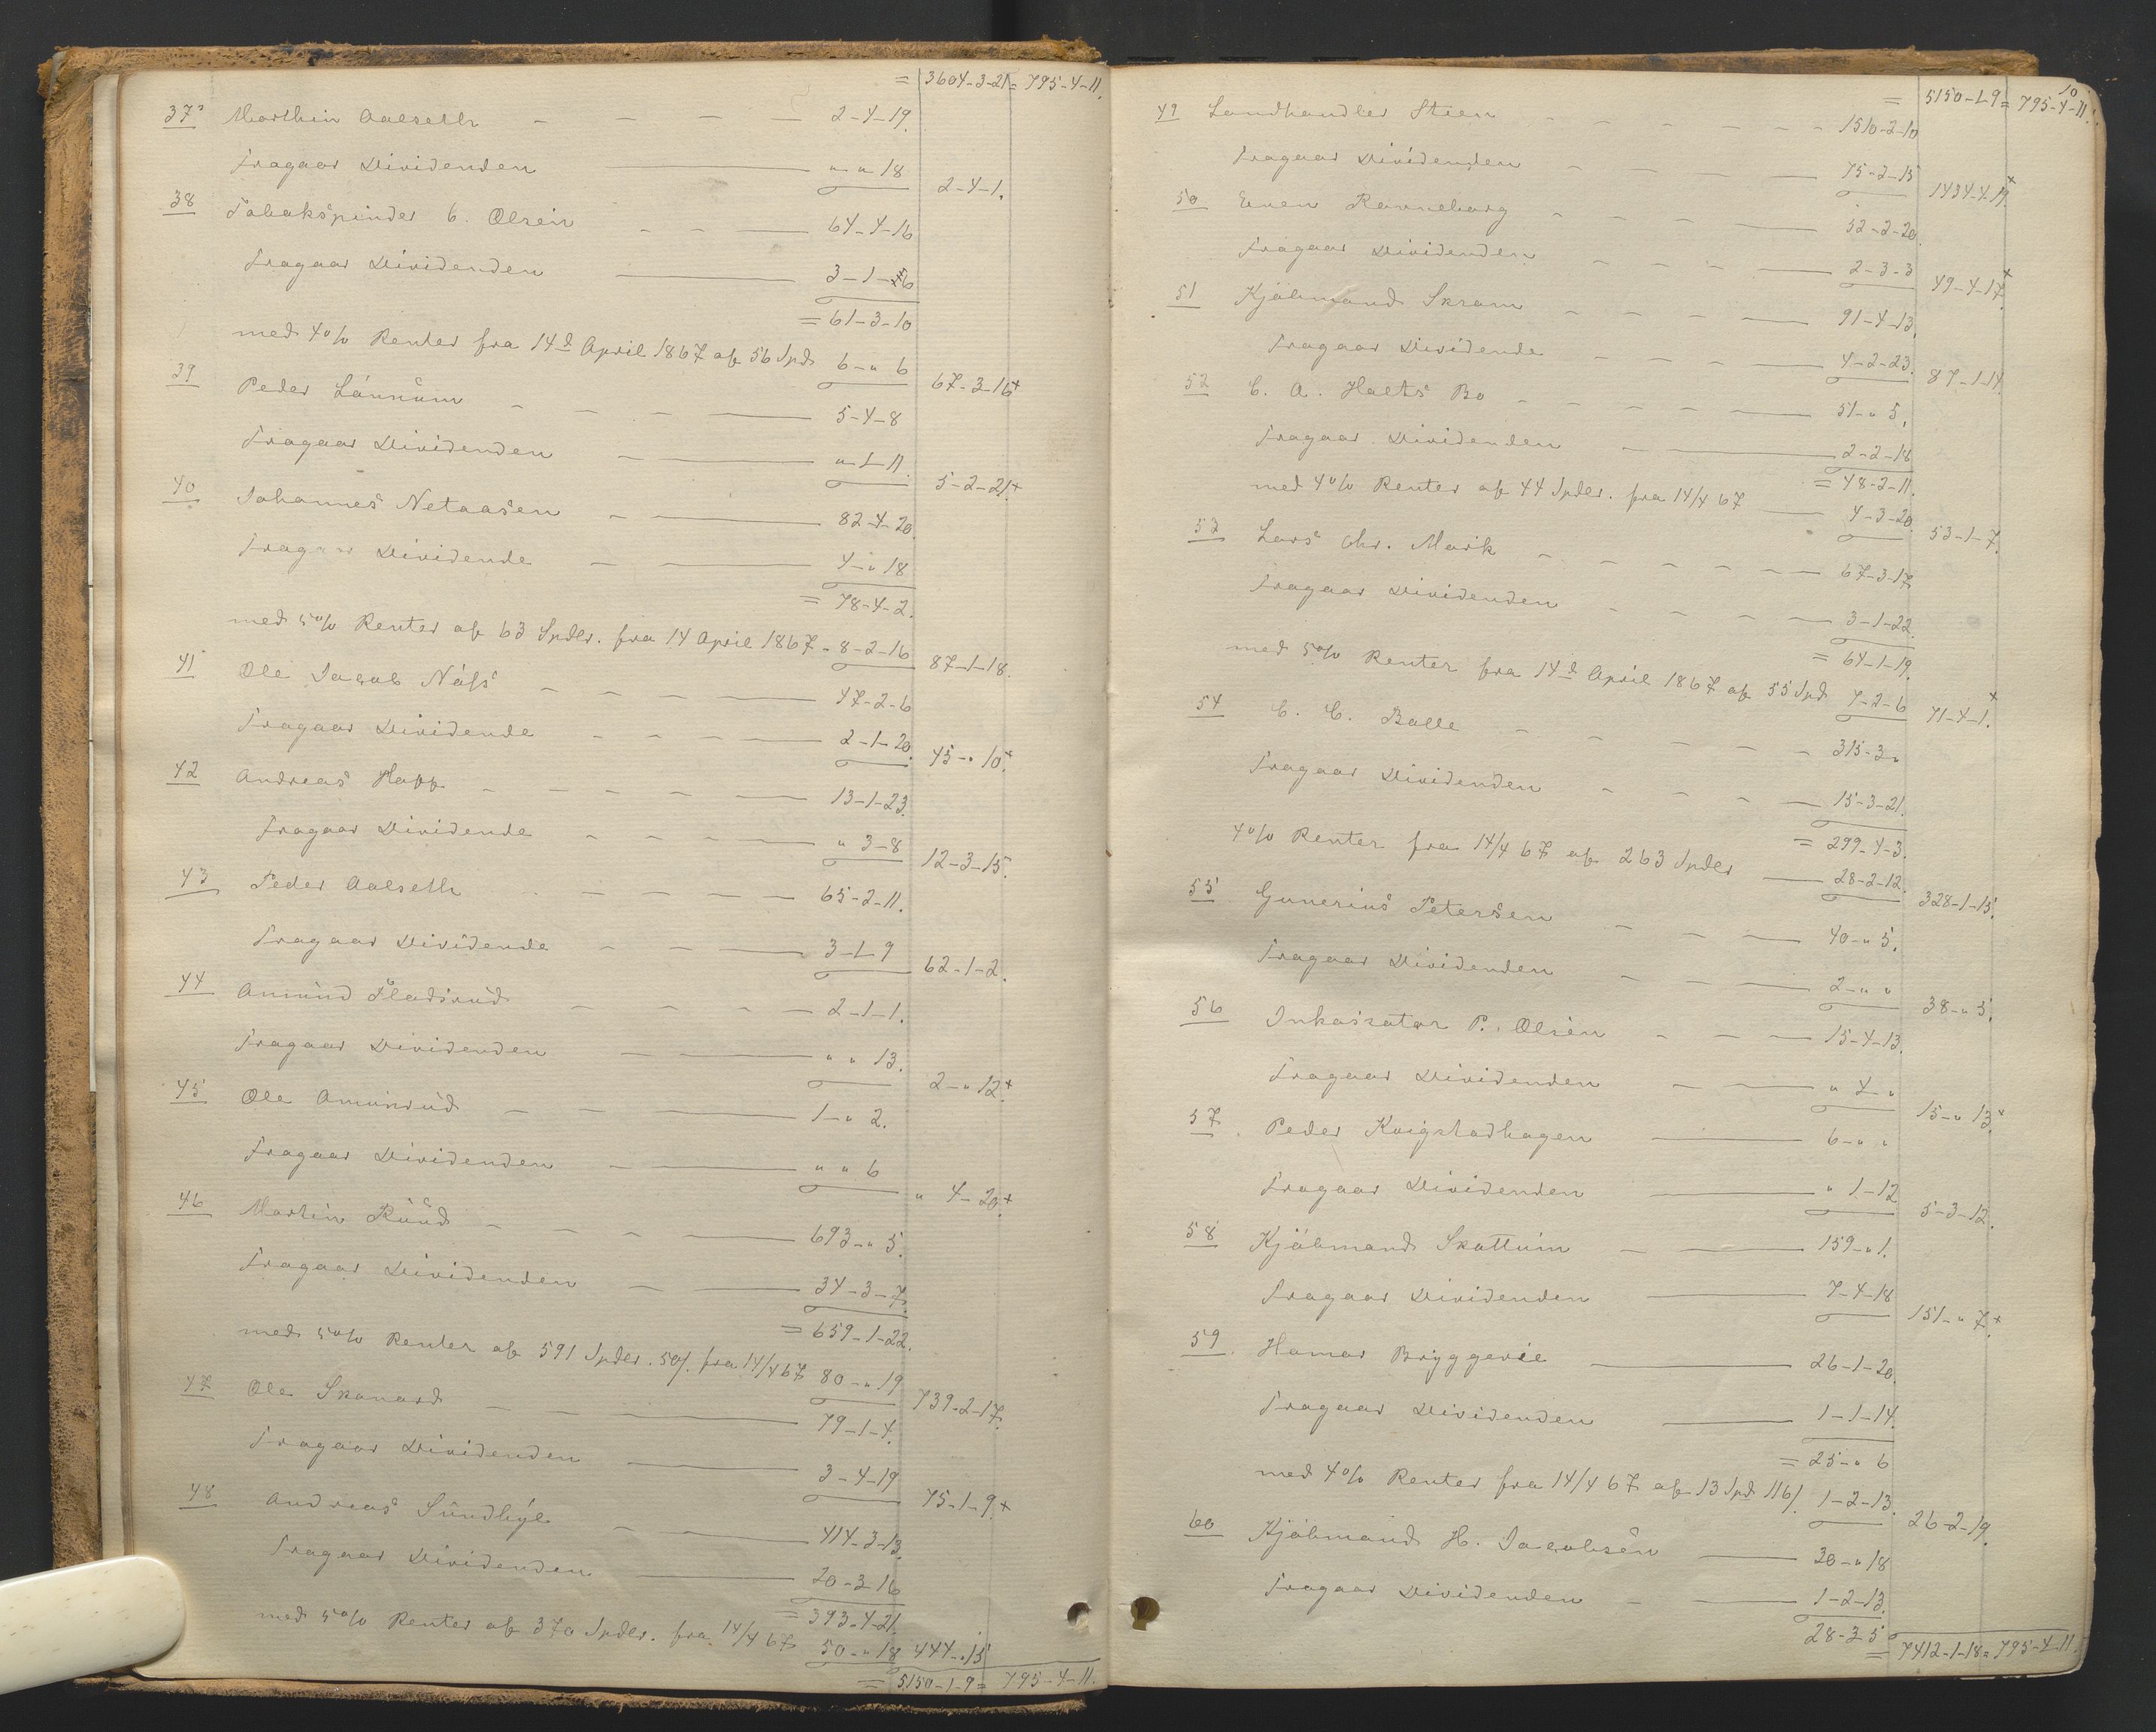 = 3604-3-21 = 795-4-11.
37. Marthin Aalseth — — — — 2-4-19.
Fragaar Dividenden — „ „ 18 2-4-1.
38 Tobakspinder C. Olsen — — — 64-4-16
Fragaar Dividenden — 3-1-6
= 61-3-10
med 4% Renter fra 14d April 1867 af 56 Spd 6-„ 6 67-3-16+
39 Peder Lánnúm — — — — 5-4-8
Fragaar Dividenden — — „-1-11. 5-2-21+
40 Johannes Netaasen — — 82-4-20.
Fragaar Dividende — — 4-„ 18
= 78-4-2.
med 5% Renter af 63 Spdlr. fra 14 April 1867 - 8-2-16 87-1-18.
41 Ole Jacob Næss — — — — 47-2-6
Fragaar Dividende — — — — 2-1-20. 45-„ 10+
42 Andreas Hopp — — — — — 13-1-23.
Fragaar Dividende — — — — „ 3-8 12-3-15.
43 Peder Aalseth — — — — 65-2-11.
Fragaar Dividende — — — 3-1-9 62-1-2.
44 Amund Fladsrud — — — — 2-1-1.
Fragaar Dividenden — — „ „ 13. 2-„ 12+
45 Ole Amunrud — — — 1-„ 2.
Fragaar Dividenden — — „ „ 6 „ 4-20+
46 Martin Ruud — — — — 693-„ 5.
Fragaar Dividenden — — 34-3-7.
= 659-1-22.
med 5% Renter af 591 Spdlr. 50/. fra 14/4 67 80-„ 19 739-2-17.
47 Ole Skanard — — — 79-1-4.
Fragaar Dividenden — 3-4-19 75-1-9.+
48 Andreas Sundbye — — 414-3-13.
Fragaar Dividenden — 20-3-16
= 393-4-21.
med 5% Renter af 370 Spdlr. fra 14/4 67 50-„ 18 444-„ 15
= 5150-1-9 = 795-4-11.
10.
= 5150-1-9 = 795-4-11.
49 Landhandler Steen — — — — — — 1510-2-10
Fragaar Dividenden — — — — 75-2-15 1434-4-19.+
50 Even Ravneborg — — — — 52-2-20.
Fragaar Dividenden — — — — 2-3-3 49-4-17.+
51 Kjøbmand Skram — — — — 91-4-13.
Fragaar Dividende — — — — 4-2-23. 87-1-14.
52 C. A. Holts Bo — — — — — 51-„ 5.
Fragaar Dividenden — 2-2-18
= 48-2-11.
med 4% Renter af 44 Spdlr. fra 14/4 67 — 4-3-20. 53-1-7.
53 Lars Chr. Mork — — — — — 67-3-17.
Fragaar Dividenden — — — — 3-1-22.
= 64-1-19.
med 5% Renter fra 14d April 1867 af 55 Spd 7-2-6 71-4-1.+
54 C. C. Balle — — — — — 315-3-„
Fragaar Dividenden — — — — 15-3-21.
= 299-4-3.
4% Renter fra 14/4 67 af 263 Spdlr — 28-2-12. 328-1-15.
55 Gunerius Petersen — — — — 40-„ 5.
Fragaar Dividenden — — — 2-„ „ 38-„ 5.
56 Inkassator P. Olsen — — — 15-4-13.
Fragaar Dividenden — — „ 4-„ 15-„ 13.+
57. Peder Kvigstadhagen — 6-„ „
Fragaar Dividenden — „ 1-12 5-3-12.
58 Kjøbmand Skattum — — 159-„ 1.
Fragaar Dividenden — 7-4-18 151-„ 7.+
59. Hamar Bryggerie — 26-1-20.
Fragaar Dividenden — 1-1-14.
= 25-„ 6
med 4% Renter fra 14/4 67 af 13 Spd 116/. 1-2-13. 26-2-19.
60 Kjøbmand H. Jacobsen — 30-„ 18
Fragaar Dividenden — — 1-2-13.
28-3-5
= 7412-1-18 = 795-4-11.